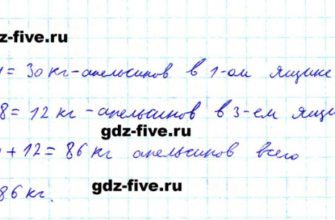 dz-five.ru
= 30 кг - апельсинов в 1-ом ящике
8 = 12 кг - апельсинов в 3-ем ящи
gdz-five.ru
+ 12 = 86 кг апельсинов всего
gdz-five.ru
86 кг.